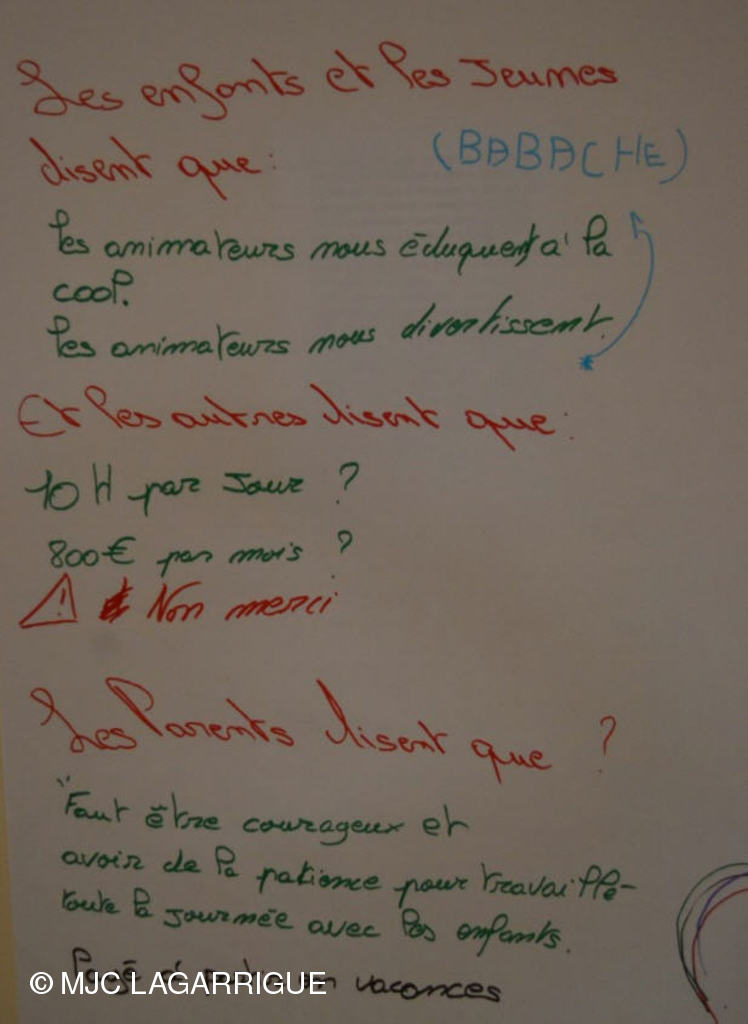 Les enfants et les jeunes
disent que:
(BABACHE)
les animateurs nous éduquent à la
cool.
les animateurs nous divertissent.
*
Et les autres disent que:
10 H par jour ?
800€ par mois ?
Non merci
Les Parents disent que ?
"Faut être courageux et
avoir de la patience pour travaillé-
toute la journée avec les enfants.
en vacances
© MJC LAGARRIGUE